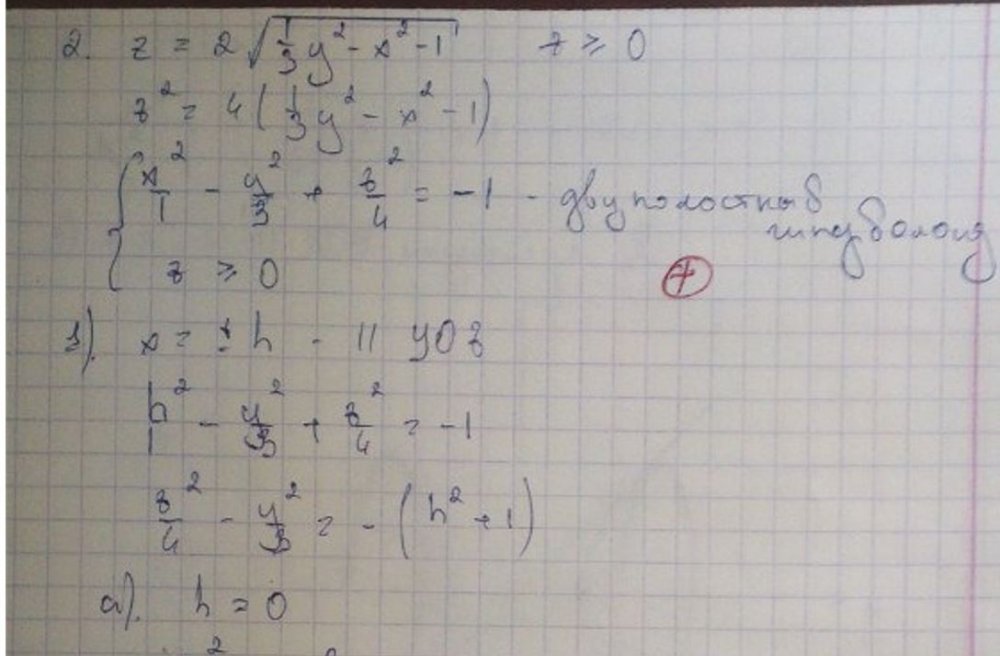 2. z = 2√(1/3 y² - x² - 1) z ≥ 0
z² = 4(1/3 y² - x² - 1)
{ x²/1 - y²/3 + z²/4 = -1 - двуполостный
гиперболоид
z ≥ 0 +
1). x = ± h - || yOz
h²/1 - y²/3 + z²/4 = -1
z²/4 - y²/3 = - (h² + 1)
а). h = 0